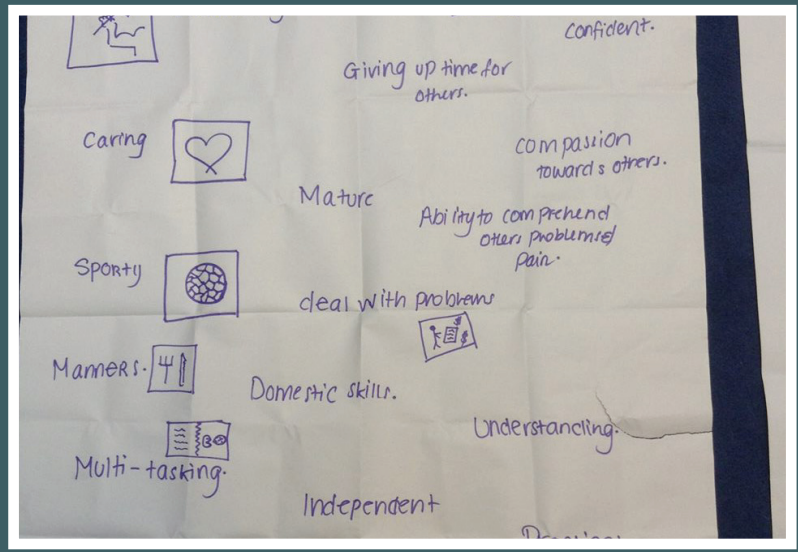 confident.
Giving up time for
others.
Caring
compassion
towards others.
Mature
Ability to comprehend
others problems &
pain.
Sporty
deal with problems
$
$
Manners.
Domestic skills.
Understanding.
Multi-tasking.
Independent